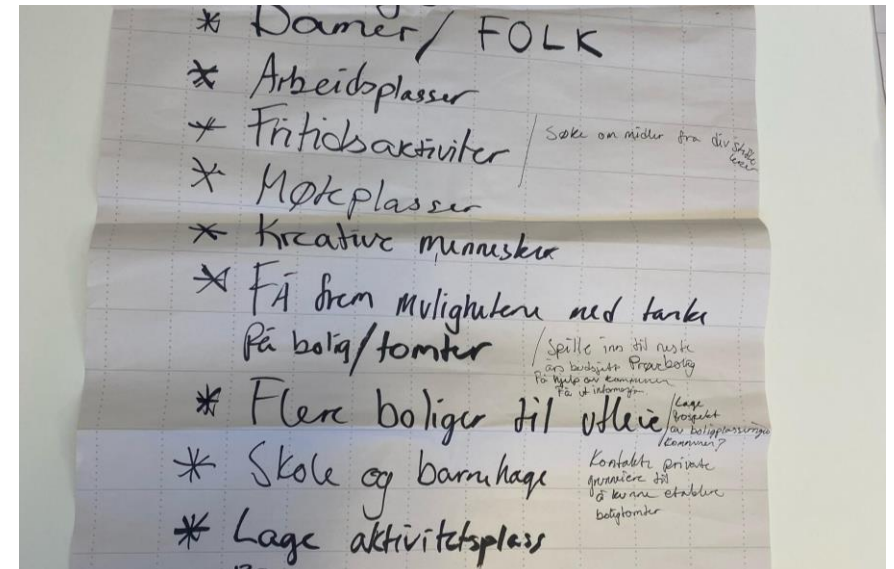 * Damer/ FOLK
* Arbeidsplasser
* Fritidsaktiviter
/ Søke om midler fra div
* Møteplasser
* Kreative mennesker
* FÅ frem mulighetene med tanke
På bolig/tomter
/ Spille inn til neste
års budsjett Prøvebolig
Få hjelp av kommunen
Få ut informasjon
* Flere boliger til utleie
/Lage
prospekt
av boligplasseringer
/kommunen?
* Skole og barnehage
Kontakte private
grunneiere til
å kunne etablere
boligtomter
* Lage aktivitetsplass